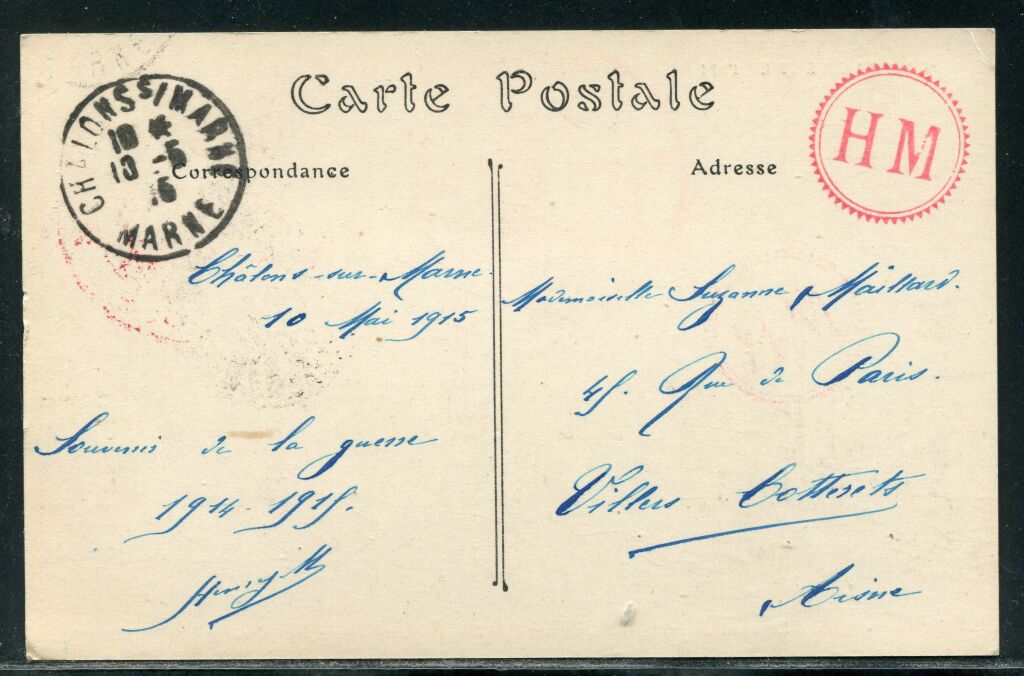 Carte Postale
CHALONS S/ MARNE
10 *
10 -5
15
MARNE
HM
Correspondance
Adresse
Châlons-sur-Marne.
10 Mai 1915
Souvenir de la guerre
1914-1915.
Henry M
Mademoiselle Suzanne Maillard.
45. Rue de Paris.
Villers Cotterets
Aisne